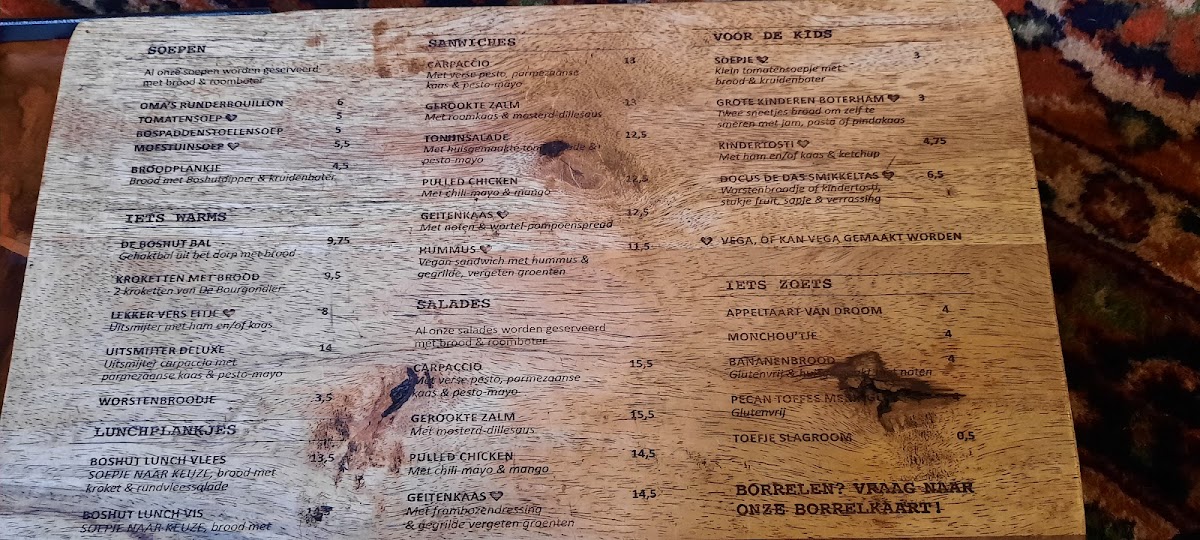 SOEPEN
Al onze soepen worden geserveerd
met brood & roomboter
OMA'S RUNDERBOUILLON 6
TOMATENSOEP 5
BOSPADDENSTOELENSOEP 5
MOESTUINSOEP 5,5
BROODPLANKJE 4,5
Brood met Boshutdipper & kruidenboter
IETS WARMS
DE BOSHUT BAL 9,75
Gehaktbal uit het dorp met brood
KROKETTEN MET BROOD 9,5
2 kroketten van De Bourgondier
LEKKER VERS EITJE 8
Uitsmijter met ham en/of kaas
UITSMIJTER DELUXE 14
Uitsmijter carpaccio met
parmezaanse kaas & pesto-mayo
WORSTENBROODJE 3,5
LUNCHPLANKJES
BOSHUT LUNCH VLEES 13,5
SOEPJE NAAR KEUZE, brood met
kroket & rundvleessalade
BOSHUT LUNCH VIS
SOEPJE NAAR KEUZE, brood met
SANWICHES
CARPACCIO 13
Met verse pesto, parmezaanse
kaas & pesto-mayo
GEROOKTE ZALM 13
Met roomkaas & mosterd-dillesaus
TONIJNSALADE 12,5
Met huisgemaakte &
pesto-mayo
PULLED CHICKEN 12,5
Met chili-mayo & mango
GEITENKAAS 12,5
Met noten & wortel-pompoenspread
HUMMUS 11,5
Vegan sandwich met hummus &
gegrilde, vergeten groenten
SALADES
Al onze salades worden geserveerd
met brood & roomboter
CARPACCIO 15,5
Met verse pesto, parmezaanse
kaas & pesto-mayo
GEROOKTE ZALM 15,5
Met mosterd-dillesaus
PULLED CHICKEN 14,5
Met chili-mayo & mango
GEITENKAAS 14,5
Met frambozendressing
& gegrilde vergeten groenten
VOOR DE KIDS
SOEPJE 3
Klein tomatensoepje met
brood & kruidenboter
GROTE KINDEREN BOTERHAM 3
Twee sneetjes brood om zelf te
smeren met jam, pasta of pindakaas
KINDERTOSTI 4,75
Met ham en/of kaas & ketchup
DOCUS DE DAS SMIKKELTAS 6,5
Worstenbroodje of kindertosti,
stukje fruit, sapje & verrassing
VEGA, OF KAN VEGA GEMAAKT WORDEN
IETS ZOETS
APPELTAART VAN DROOM 4
MONCHOU'TJE 4
BANANENBROOD 4
Glutenvrij & met noten
PECAN TOFFEE
Glutenvrij
TOEFJE SLAGROOM 0,5
BORRELEN? VRAAG NAAR
ONZE BORRELKAART!